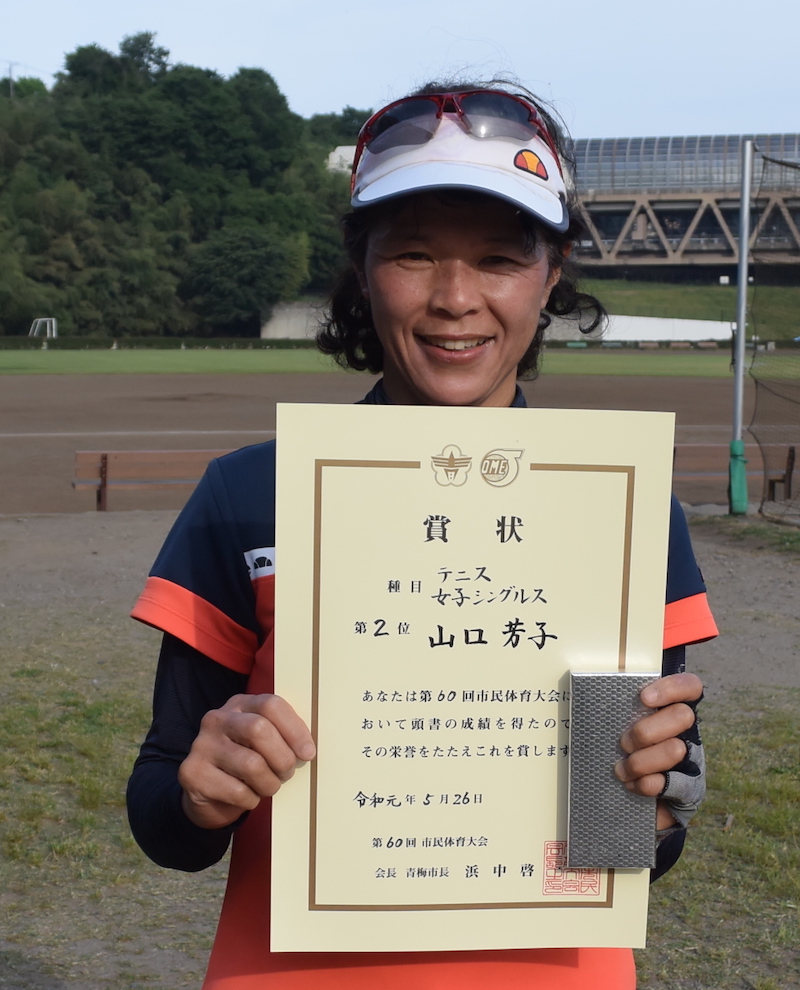 OME
賞 状
種目 テニス
女子シングルス
第2位 山口 芳子
あなたは第60回市民体育大会に
おいて頭書の成績を得たので
その栄誉をたたえこれを賞します
令和元年5月26日
第60回 市民体育大会
会長 青梅市長 浜中啓